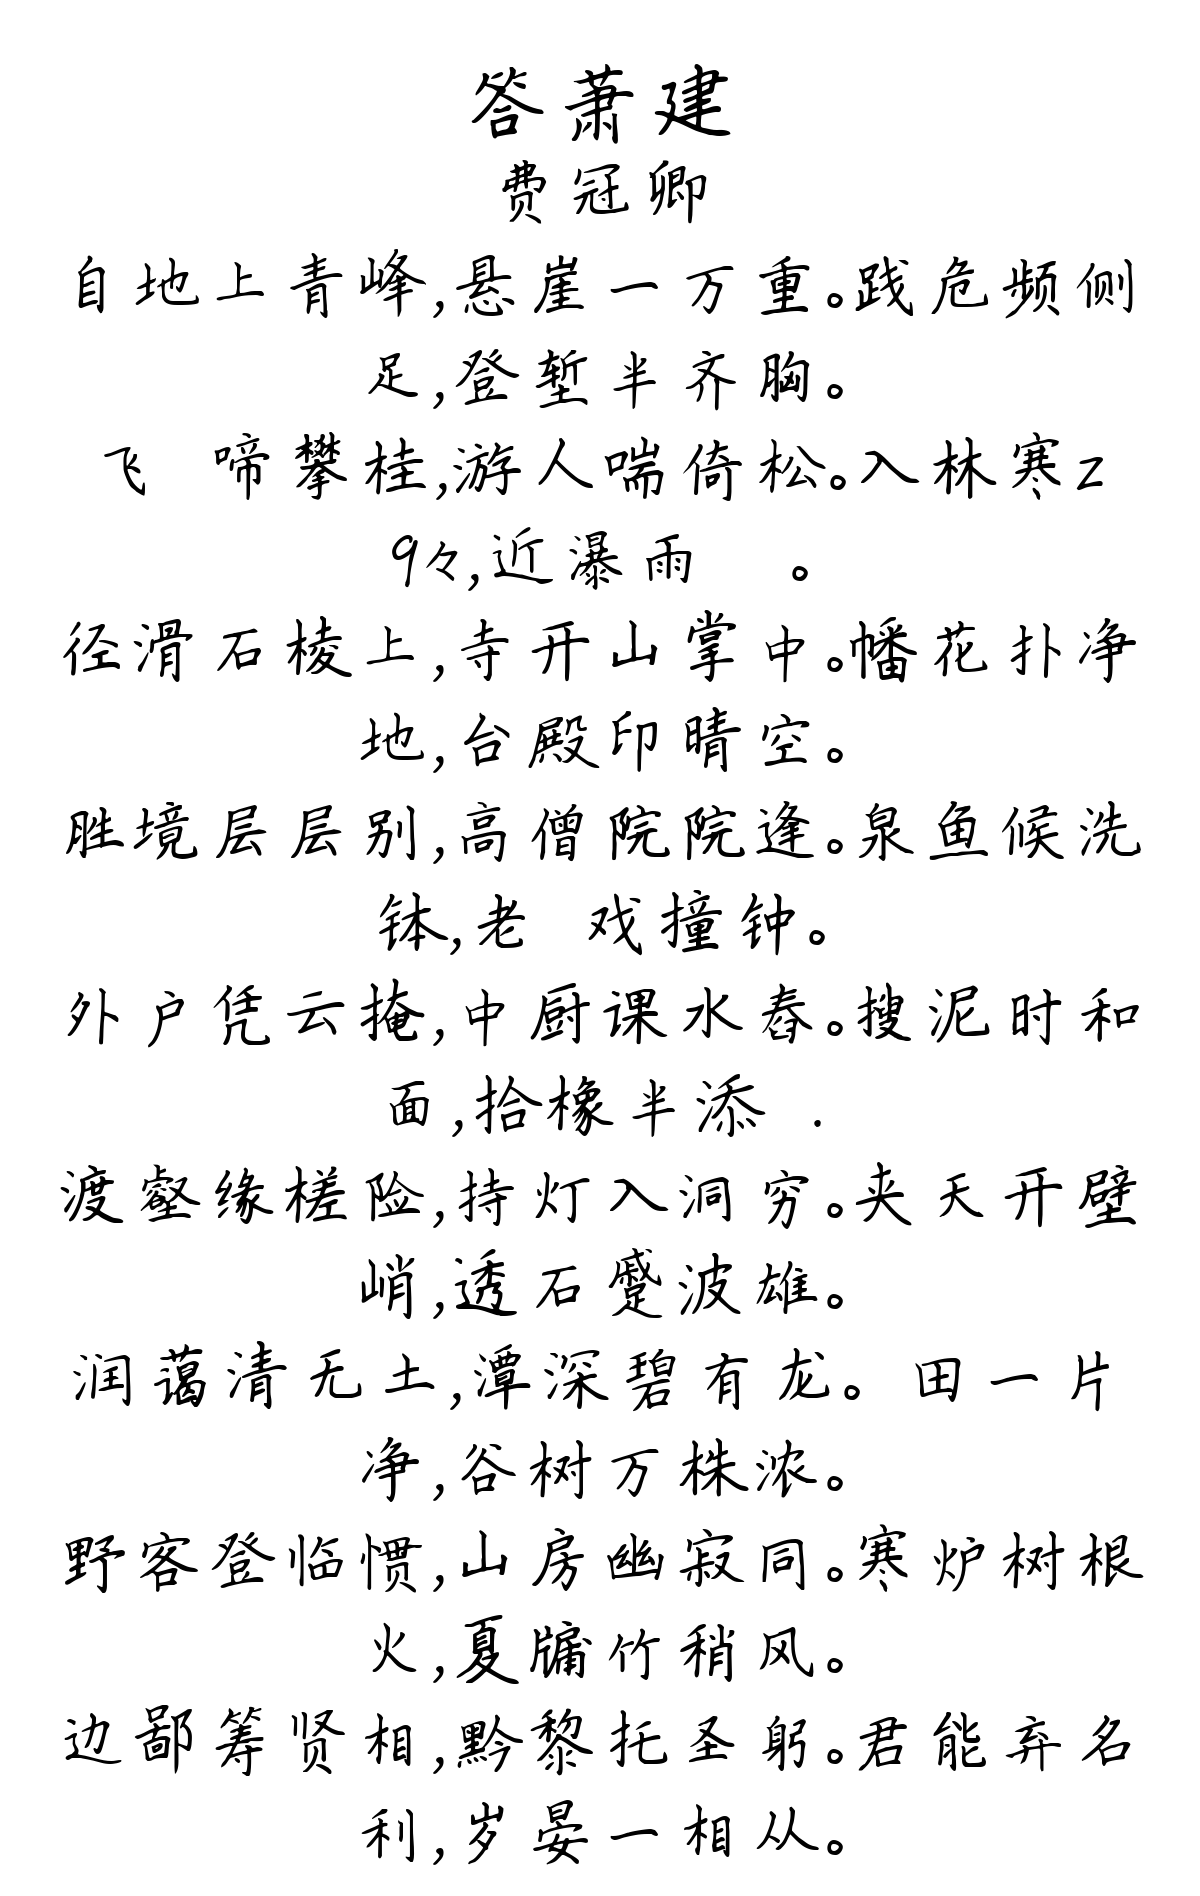 答萧建
费冠卿
自地上青峰,悬崖一万重。践危频侧
足,登堑半齐胸。
飞 啼攀桂,游人喘倚松。入林寒z
9々,近瀑雨 。
径滑石棱上,寺开山掌中。幡花扑净
地,台殿印晴空。
胜境层层别,高僧院院逢。泉鱼候洗
钵,老 戏撞钟。
外户凭云掩,中厨课水舂。搜泥时和
面,拾橡半添 .
渡壑缘槎险,持灯入洞穷。夹天开壁
峭,透石蹙波雄。
润蔼清无土,潭深碧有龙。 田一片
净,谷树万株浓。
野客登临惯,山房幽寂同。寒炉树根
火,夏牖竹稍风。
边鄙筹贤相,黔黎托圣躬。君能弃名
利,岁晏一相从。